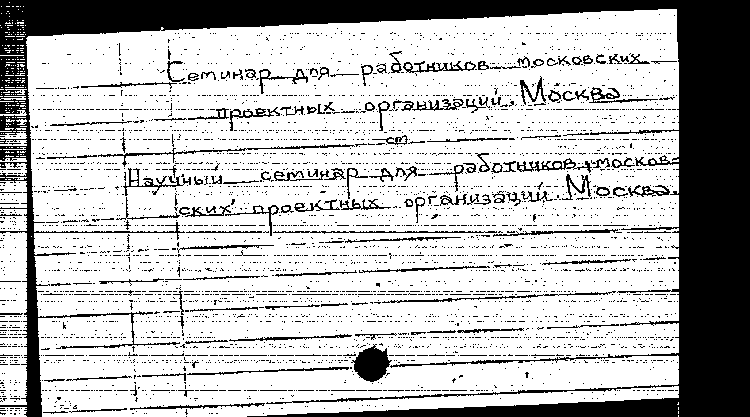 Семинар для работников московских
проектных организаций. Москва
см.
Научный семинар для работников москов-
ских проектных организаций. Москва.